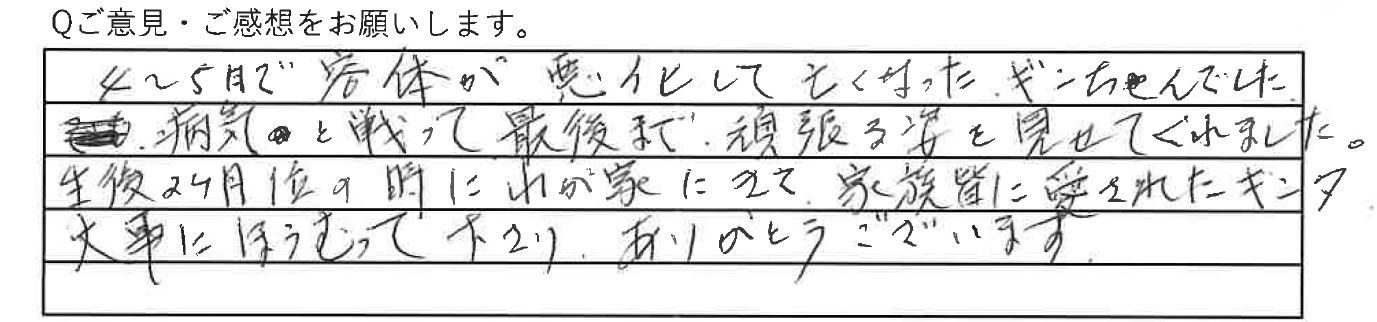 Qご意見・ご感想をお願いします。
4〜5日で容体が悪化して亡くなったギンちゃんでした
病気と戦って最後まで頑張る姿を見せてくれました。
生後2ヶ月位の時にわが家にきて、家族皆に愛されたギンタ
大事にほうむって下さり、ありがとうございます。